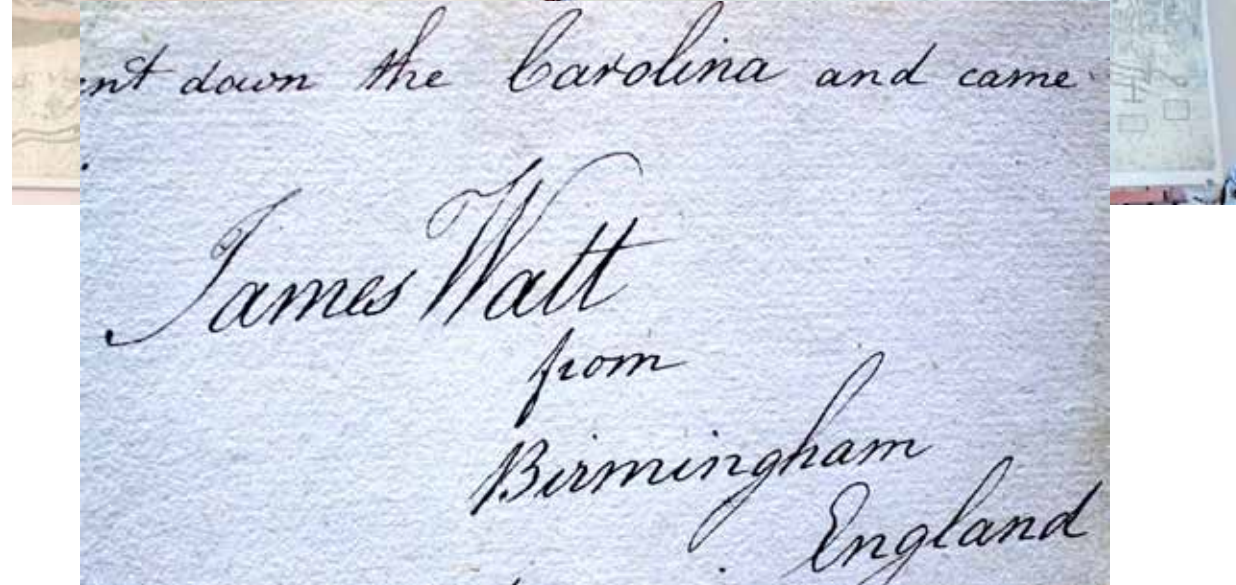 ent down the Carolina and came
James Watt
from
Birmingham
England